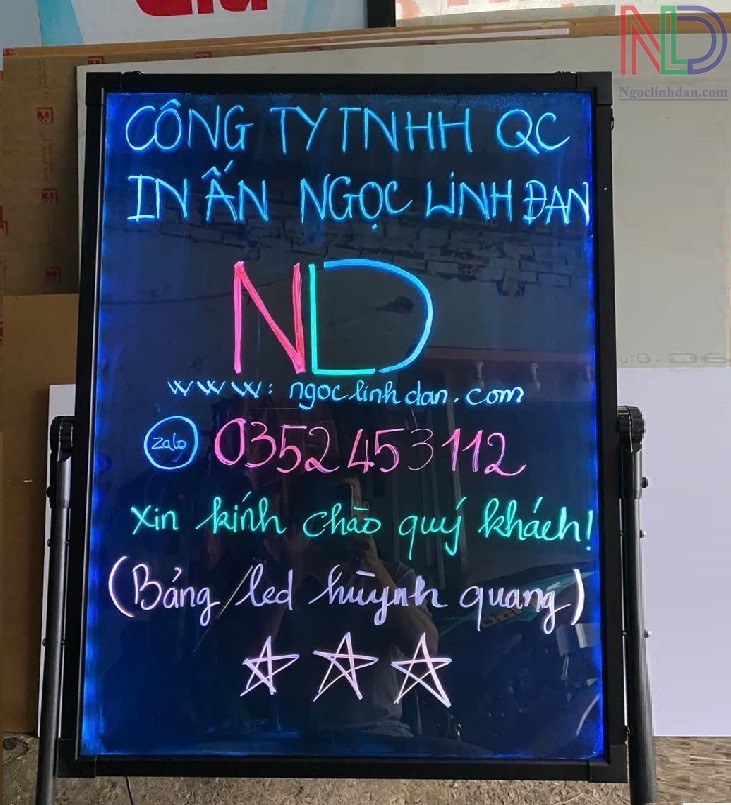 Giá
NLD
Ngoclinhdan.com
CÔNG TY TNHH QC
IN ẤN NGỌC LINH ĐAN
NLD
www: ngoclinhdan.com
Zalo 0352453112
Xin kính chào quý khách!
(Bảng led huỳnh quang)